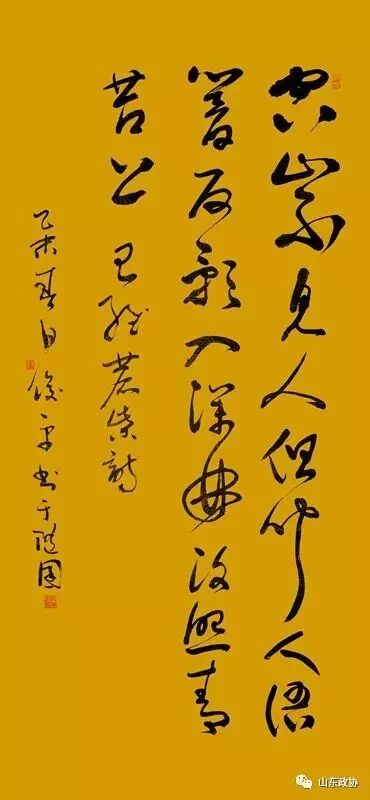 空山不見人但聞人語
響反影入深林復照青
苔上 王維鹿柴詩
乙未春日俊平书于隨園
山东政协